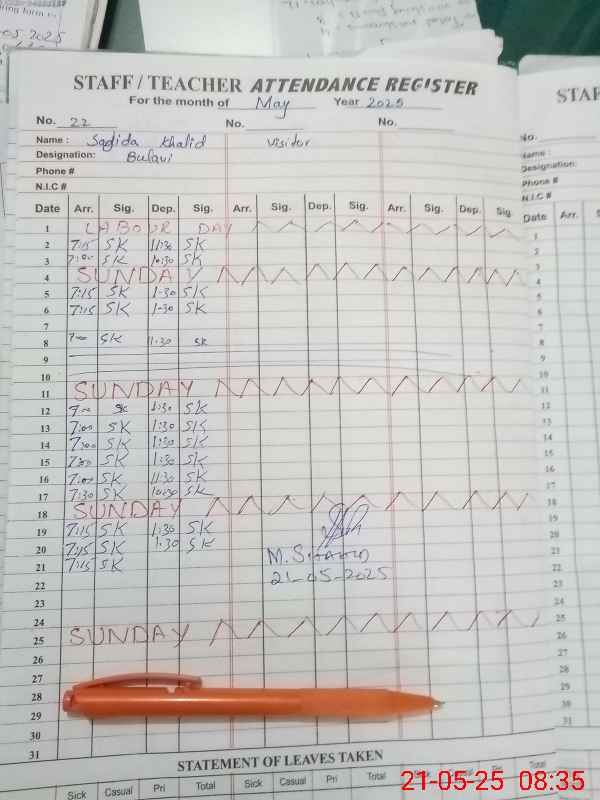 05 2025
STAFF / TEACHER ATTENDANCE REGISTER
For the month of May Year 2025
No. 22 No. No.
Name : Sadida Khalid Visitor
Designation:
Phone #
N.I.C #
Date Arr. Sig. Dep. Sig. Arr. Sig. Dep. Sig. Arr. Sig. Dep. Sig.
1 LABOUR DAY
2 7:15 SK 11:30 SK
3 7:00 SK 10:30 SK
4 SUNDAY
5 7:15 SK 1:30 SK
6 7:15 SK 1:30 SK
7
8 7:00 SK 1:30 SK
9
10
11 SUNDAY
12 7:00 SK 1:30 SK
13 7:00 SK 1:30 SK
14 7:00 SK 1:30 SK
15 7:00 SK 1:30 SK
16 7:00 SK 11:30 SK
17 7:30 SK 10:30 SK
18 SUNDAY
19 7:15 SK 1:30 SK
20 7:15 SK 1:30 SK M.
21 7:15 SK 21-05-2025
22
23
24
25 SUNDAY
26
27
28
29
30
31
STATEMENT OF LEAVES TAKEN
Sick Casual Pri Total Sick Casual Pri Total Sick Casual Pri Total
STAF
No.
Name :
Designation:
Phone #
N.I.C #
Date Arr. S
1
2
3
4
5
6
7
8
9
10
11
12
13
14
15
16
17
18
19
20
21
22
23
24
25
26
27
28
29
30
31
21-05-25 08:35